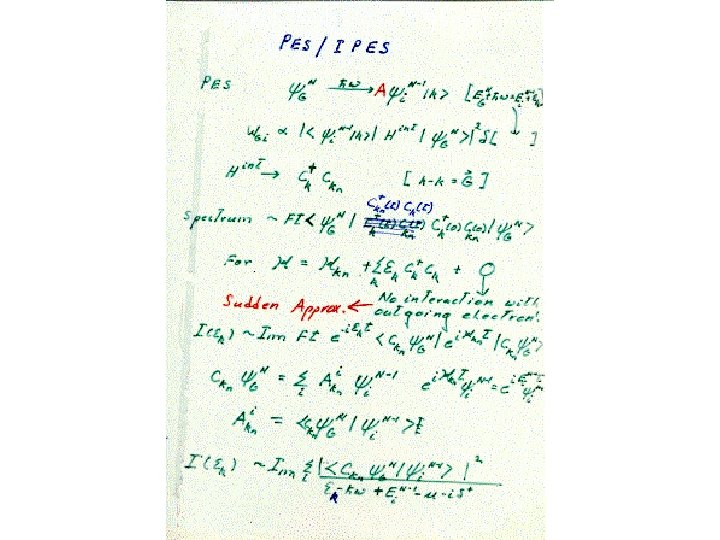 PES / IPES
PES ψ_G^N —ħω→ A ψ_i^{N-1} |k> [E_G^N + ħω = E_i^{N-1} + ε_k]
W_{Gi} ∝ |<ψ_i^{N-1}|k>| H^{int} | ψ_G^N>|² δ[ ]
H^{int} → C_k^+ C_{kn} [k-k = G⃗]
C_{kn}^+(t) C_k(t)
Spectrum ~ FT <ψ_G^N | C_k^+(0) C_{kn}(0) | ψ_G^N>
For H = H_{kn} + Σ_k ε_k C_k^+ C_k + O
Sudden Approx. ← No interaction with
outgoing electron.
I(ε_k) ~ Im FT e^{-iε_k t} <C_{kn} ψ_G^N | e^{iH_{kn}t} | C_{kn} ψ_G^N>
C_{kn} ψ_G^N = Σ_i A_{kn}^i ψ_i^{N-1} e^{iH_{kn}t} ψ_i^{N-1} = e^{iE_i^{N-1}t} ψ_i^{N-1}
A_{kn}^i = <C_{kn} ψ_G^N | ψ_i^{N-1}>
I(ε_k) ~ Im Σ_i |<C_{kn} ψ_G^N | ψ_i^{N-1}>|²
ε_k - ħω + E_i^{N-1} - μ - iδ^+